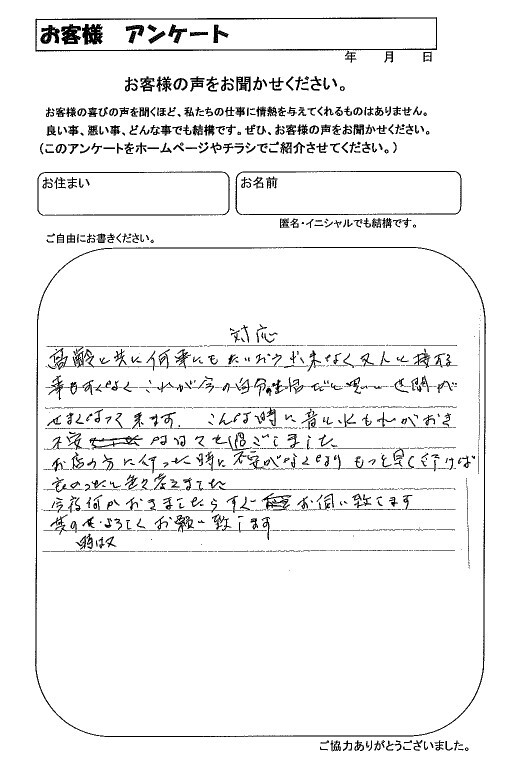 お客様 アンケート
年 月 日
お客様の声をお聞かせください。
お客様の喜びの声を聞くほど、私たちの仕事に情熱を与えてくれるものはありません。
良い事、悪い事、どんな事でも結構です。ぜひ、お客様の声をお聞かせください。
(このアンケートをホームページやチラシでご紹介させてください。)
お住まい
お名前
匿名・イニシャルでも結構です。
ご自由にお書きください。
対応
高齢と共に何事にもたいおう出来なく又人に接する
事もすくなく これが今の自分の生活だと思い 世間が
せまくなって来ます. こんな時に 水もれがおき
不安 な日々を過ごしました
お店の方に行った時に不安がなくなり もっと早く行けば
良かったと色々考えました
今后何かおきましたらすぐ お伺い致します
其の せ よろしくお願い致します
時は又
ご協力ありがとうございました。